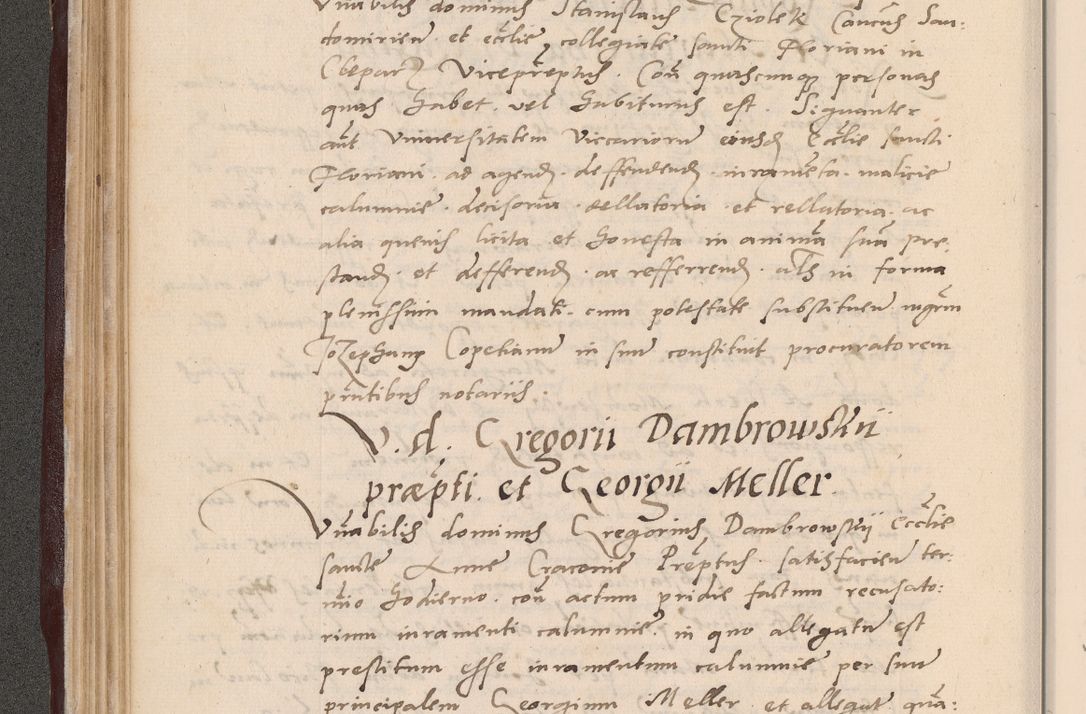 Vnabilis dominus Stanislaus Cziolek Cancus San:
domirien et ecclie collegiate sancti Floriani in
Cleparz Vicepreptus. Con quascunque personas
quas habet vel habiturus est. Signanter
aut Vniuersitatem Viccariorum eiusd Ecclie sancti
Floriani. ad agend. deffendend. iuramenta. malicie
calumnie. decisoria. dellatoria et rellatoria. ac
alia quevis licita et honesta in anima sua pre:
stand. et defferend. ac refferrend. als in forma
plenissim mandati. cum potestate substituen mgrm
Jozephum Copetianum in suum constituit procuratorem
pntibus notariis.
V. d. Gregorii Dambrowskii
præpti. et Georgii Meller.
Vnabilis dominus Gregorius Dambrowskii Ecclie
sancte Anne Cracovie Preptus. satisfacien ter:
mio hodierno. con actum pridie factum recusato:
rium iuramenti calumnie. in quo allegatum est
prestitum esse iuramentum calumnie per suum
principalem Georgium Meller et allegat qua: